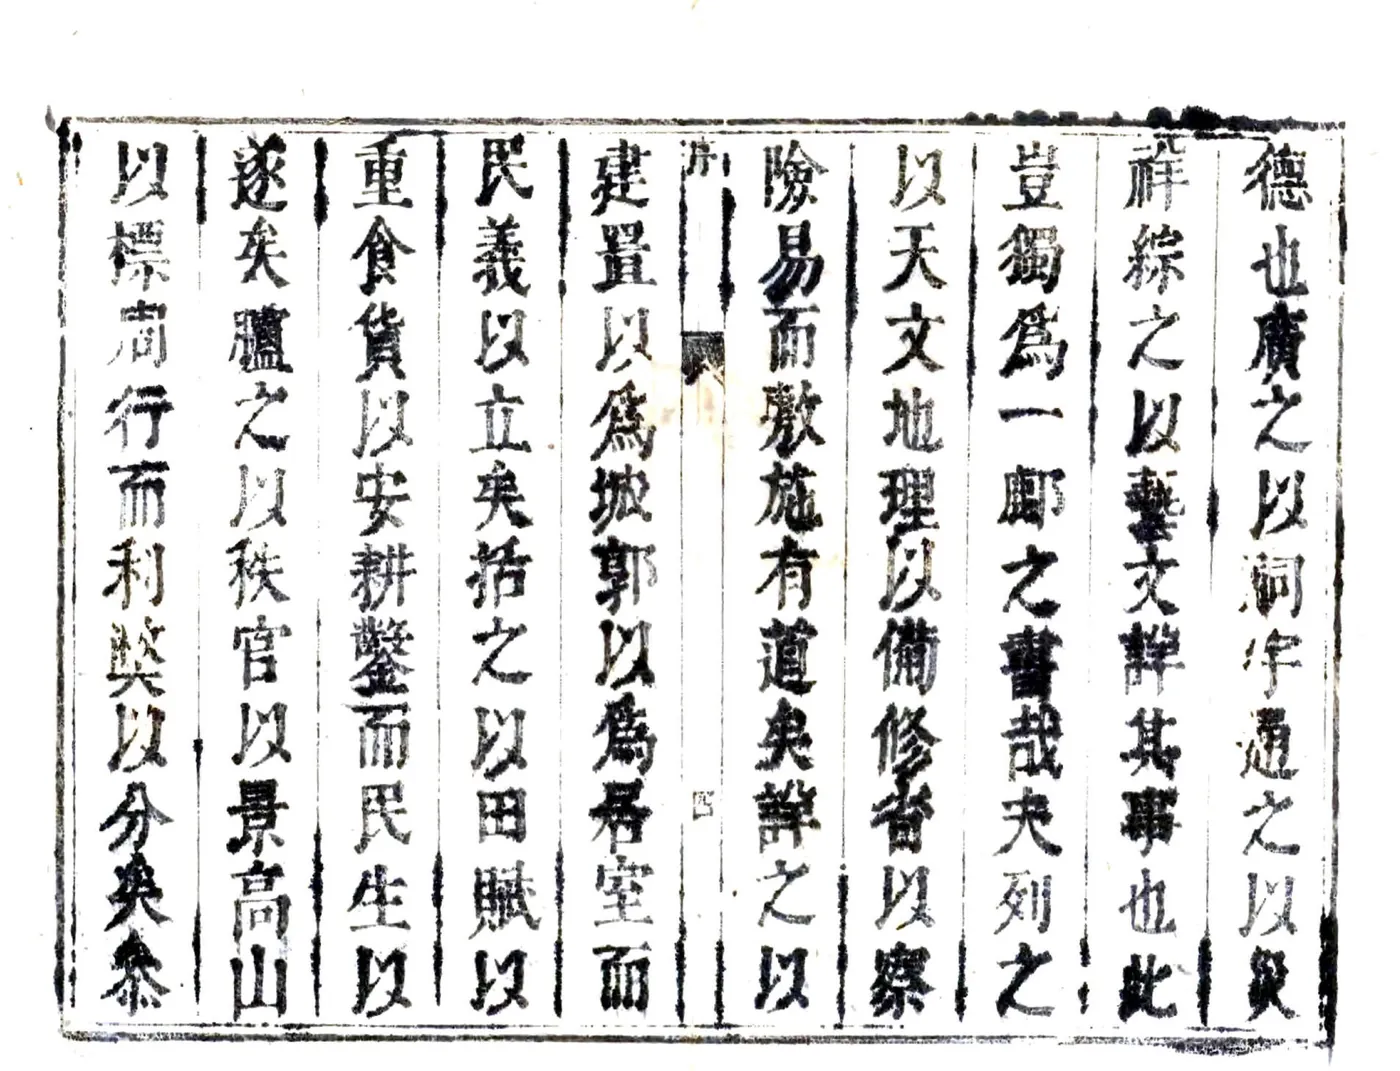 德也廣之以祠宇通之以災
祥綜之以藝文詳其事也此
豈獨爲一郡之書哉夫列之
以天文地理以備修省以察
險易而敷施有道矣詳之以
序
四
建置以爲城郭以爲居室而
民義以立矣括之以田賦以
重食貨以安耕鑿而民生以
遂矣臚之以秩官以景高山
以標周行而利獘以分矣叅